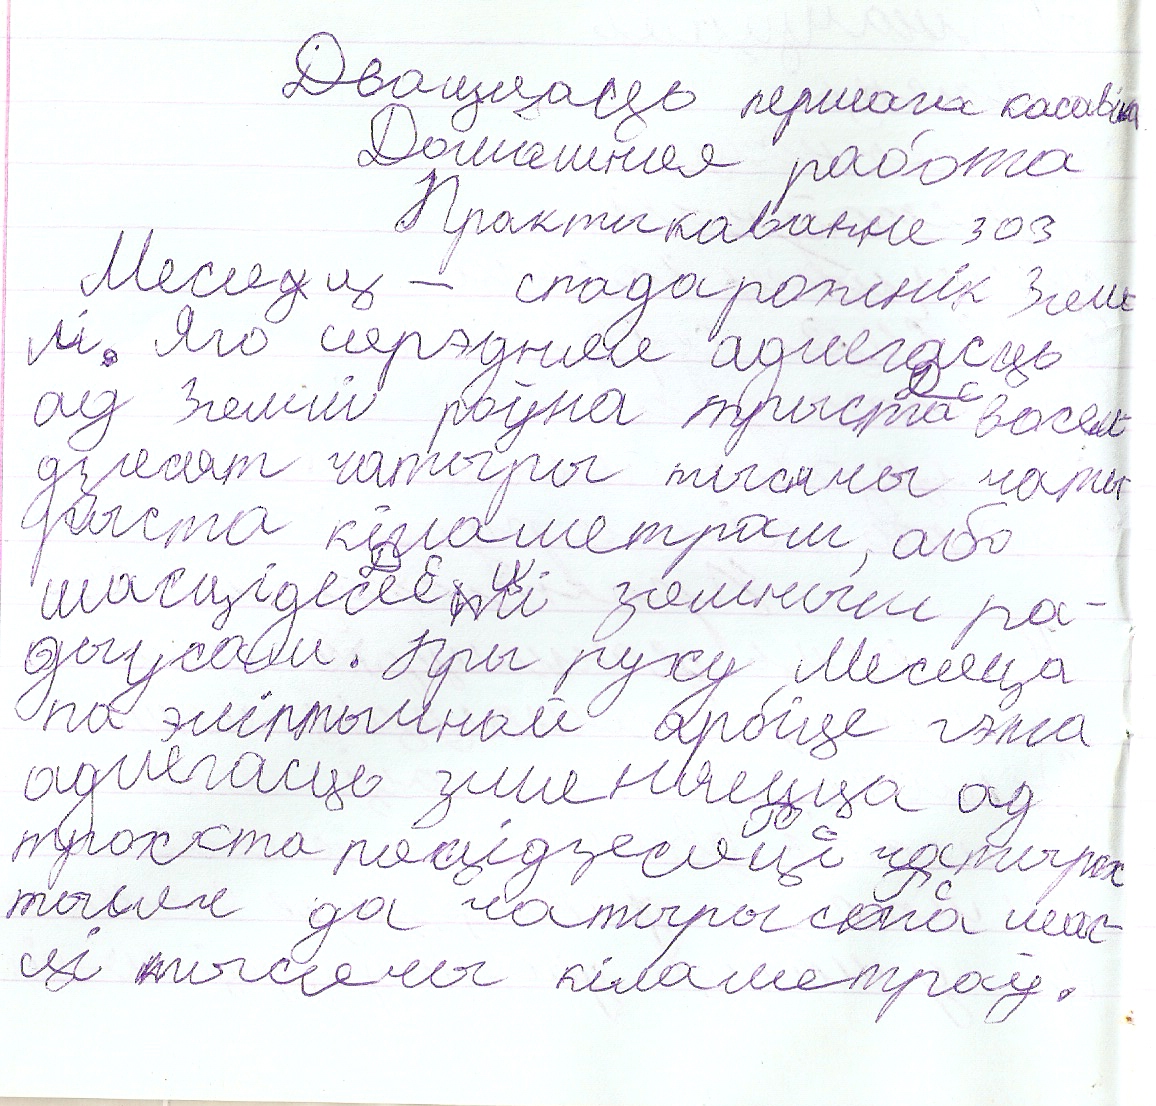 Дваццаць першага касавіка
Домашняя работа
Практыкаванне 303
Месяц — спадарожнік Зям-
лі. Яго сярэдняя адлегласць
ад Зямлі роўна трыста восем-
дзесят чатыры тысячы чаты-
рыста кіламетрам, або
шасцідесяці земным ра-
дыусам. Пры руху Месяца
па эліптычнай арбіце гэта
адлегасць змяняецца ад
трохста пяцідзесяці чатырох
тысяч да чатырыста шас-
ці тысячы кіламетраў.